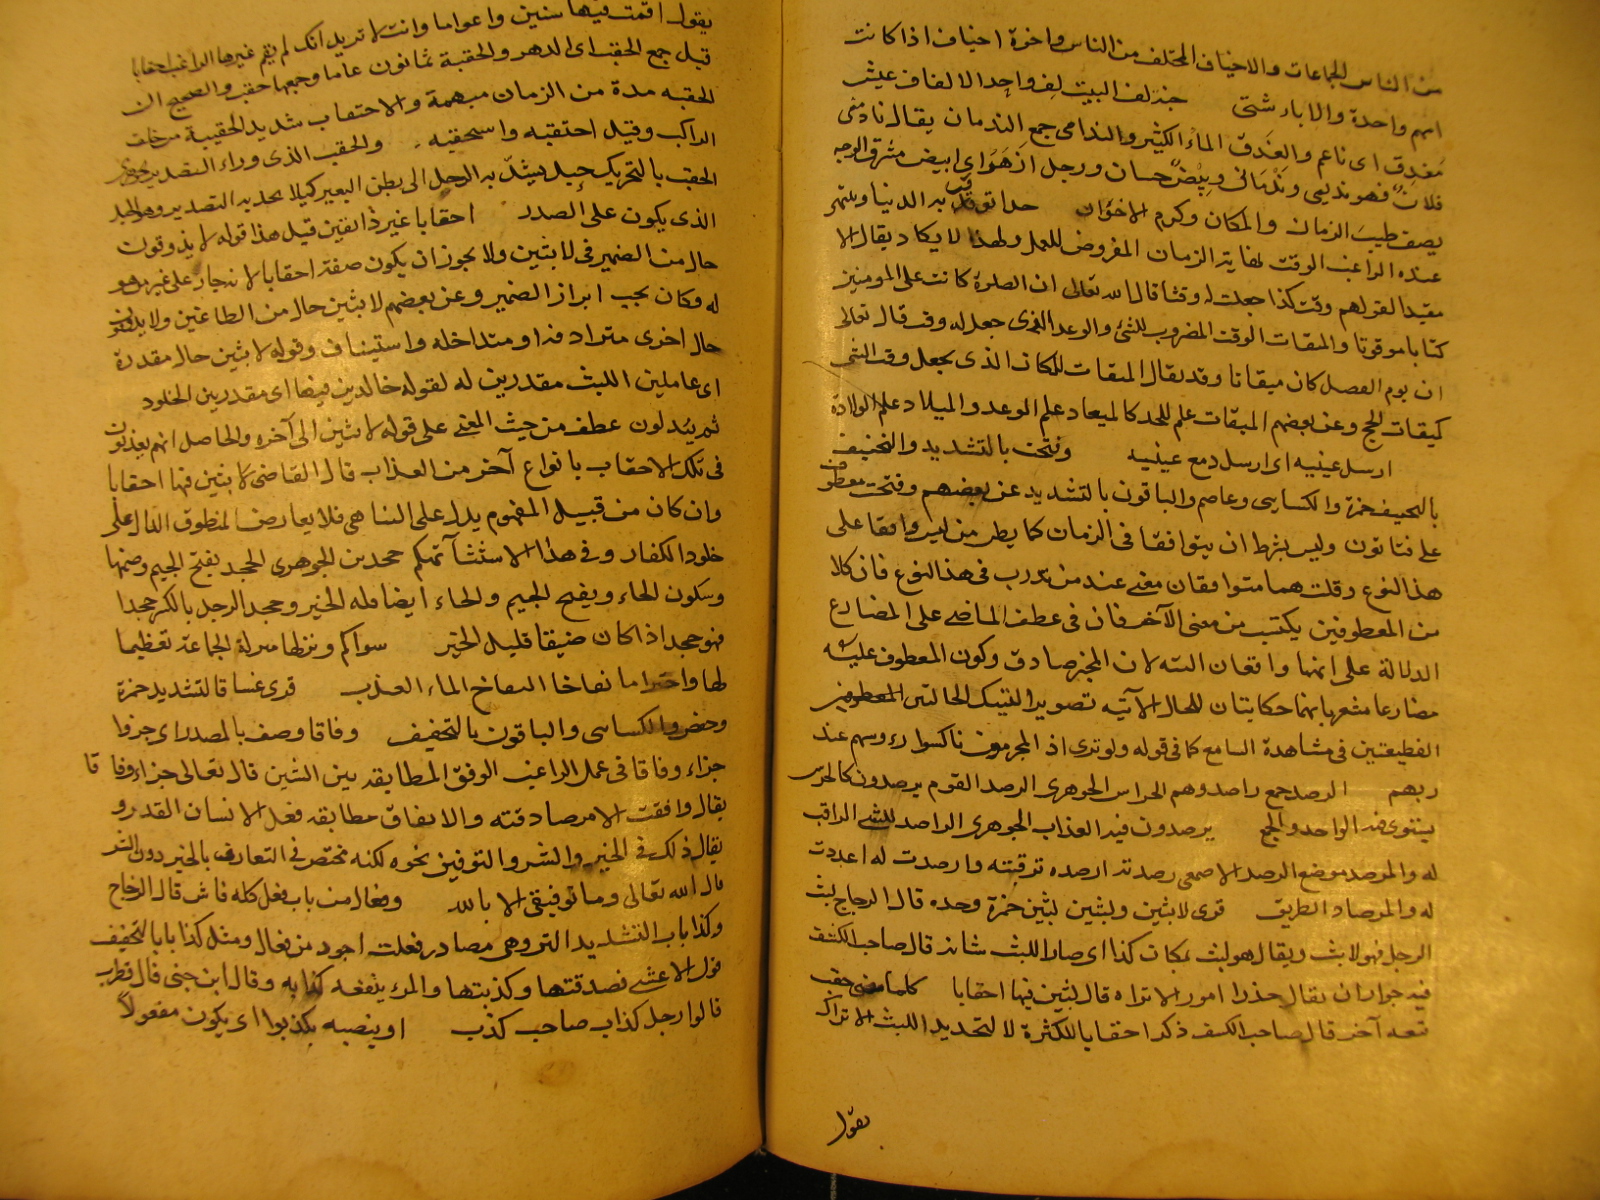 من الناس الجماعات والاخياف المختلف من الناس واخوة اخياف اذا كانت
امهم واحدة والاباء شتى جنة لف البيت لف واحد الالفاف عيش
مغدق اى ناعم والغدق الماء الكثير والندامى جمع الندمان يقال نادمنى
فلان فهو نديمى وندمانى وبيض حسان ورجل ازهر اى ابيض مشرق الوجه
يصف طيب الزمان والمكان وكرم الاخوان حدا توقت به الدنيا وتنتهى
عنده الراغب الوقت نهاية الزمان المفروض للعمل ولهذا لا يكاد يقال الا
مقيدا لقولهم وقت كذا جعلت له وقتا قال الله تعالى ان الصلوة كانت على المومنين
كتابا موقوتا والميقات الوقت المضروب للشئ والوعد الذى جعل له وقت قال تعالى
ان يوم الفصل كان ميقاتا وقد يقال الميقات للمكان الذى يجعل وقت الشئ
كميقات الحج وعن بعضهم الميقات علم للحد كالميعاد علم الوعد والميلاد علم الولادة
ارسل عينيه اى ارسل دمع عينيه وفتحت بالتشديد والتخفيف
بالتخفيف حمزة والكسايى وعاصم والباقون بالتشديد عن بعضهم وفتحت معطوف
على فتاتون وليس بشرط ان يتوافقا فى الزمان كما يظن من ليس واقفا على
هذا النوع وقلت هما متوافقان معنى عند من تدرب فى هذا النوع فان كلا
من المعطوفين يكتسب من معنى الآخر فان فى عطف الماضى على المضارع
الدلالة على انهما واقعان البتة لان المخبر صادق وكون المعطوف عليه
مضارعا مشعر بانهما حكايتان للحال الآتية تصويرا لتينك الحالتين
الفظيعتين فى مشاهدة السامع كما فى قوله ولو ترى اذ المجرمون ناكسوا رءوسهم عند
ربهم الرصد جمع راصد وهم الحراس الجوهرى الرصد القوم يرصدون كالحرس
يستوى فيه الواحد والجمع يرصدون فيه العذاب الجوهرى الراصد للشئ الراقب
له والمرصد موضع الرصد الاصمعى رصدته ارصده ترقبته وارصدت له اعددت
له والمرصاد الطريق قرى لابثين ولبثين لبثين حمزة وحده قال الزجاج لبث
الرجل فهو لابث ويقال هو لبث بمكان كذا اى صار اللبث شانه قال صاحب الكشف
فيه جواز ان يقال حذرا امور الا تراه قال لبثين فيها احقابا كلما مضى حقب
تبعه آخر قال صاحب الكشف ذكر احقابا للكثرة لا لتحديد اللبث الا تراك
يقول
يقول اقمت فيها سنين واعواما وانت لا تريد انك لم تقم غيرها الراغب احقابا
قيل جمع الحقب اى الدهر والحقبة ثمانون عاما وجمعها حقب والصحيح ان
الحقبه مدة من الزمان مبهمة والاحتقاب شد الحقيبة من خلف
الراكب وقيل احتقبه واستحقبه والحقب الذى وراء التصدير الجوهرى
الحقب بالتحريك حبل يشد به الرحل الى بطن البعير كيلا يجذبه التصدير وهو الحبل
الذى يكون على الصدر احقابا غير ذائقين قيل هذا قوله لا يذوقون
حال من الضمير فى لابثين ولا يجوز ان يكون صفة احقابا لانه جار على غير من هو
له وكان يجب ابراز الضمير وعن بعضهم لابثين حال من الطاغين ولا يذوقون
حال اخرى مترادفة او متداخله واستيناف وقوله لابثين حال مقدرة
اى عاملين اللبث مقدرين له لقوله خالدين فيها اى مقدرين الخلود
ثم يبدلون عطف من حيث المعنى على قوله لابثين الى آخره والحاصل انهم يعذبون
فى تلك الاحقاب بانواع آخر من العذاب قال القاضى لابثين فيها احقابا
وان كان من قبيل المفهوم يدل على التناهى فلا يعارض المنطوق الدال على
خلود الكفار وفى هذا الاستثنا تهكم جحد بن الجوهرى الجحد بفتح الجيم وضمها
وسكون الحاء وبفتح الجيم والحاء ايضا قلة الخير وجحد الرجل بالكسر جحدا
فهو جحد اذا كان ضيقا قليل الخير سواكم ونزلها منزلة الجماعة تعظيما
لها واحتراما نقاخا النقاخ الماء العذب قرى غساقا بالتشديد حمزة
وحفص والكسائى والباقون بالتخفيف وفاقا وصف بالمصدر اى جزوا
جزاء وفاقا فى عمل الراغب الوفق المطابقة بين الشيئين قال تعالى جزاء وفاقا
يقال وافقت الامر صادفته والاتفاق مطابقة فعل الانسان القدر و
يقال ذلك فى الخير والشر والتوفيق نحوه لكنه مختص فى التعارف بالخير دون الشر
قال الله تعالى وما توفيقى الا بالله وفعال من باب فعل كله فاش قال الزجاج
وكذابا بالتشديد اكثر وهى مصادر فعلت اجود من فعال ومثل كذابا بالتخفيف
قول الاعشى فصدقتها وكذبتها والمرء ينفعه كذابه وقال ابن جنى قال قطرب
قالوا رجل كذاب صاحب كذب او ينصبه بكذبوا اى يكون مفعولا